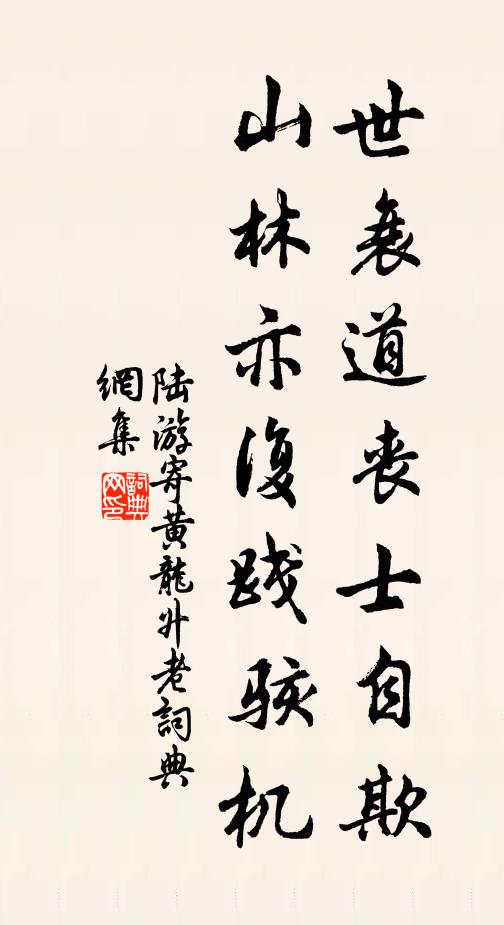 世衰道丧士自欺
山林亦復践骇机
陆游寄黄龍升老詞典
網集
詞典
网印